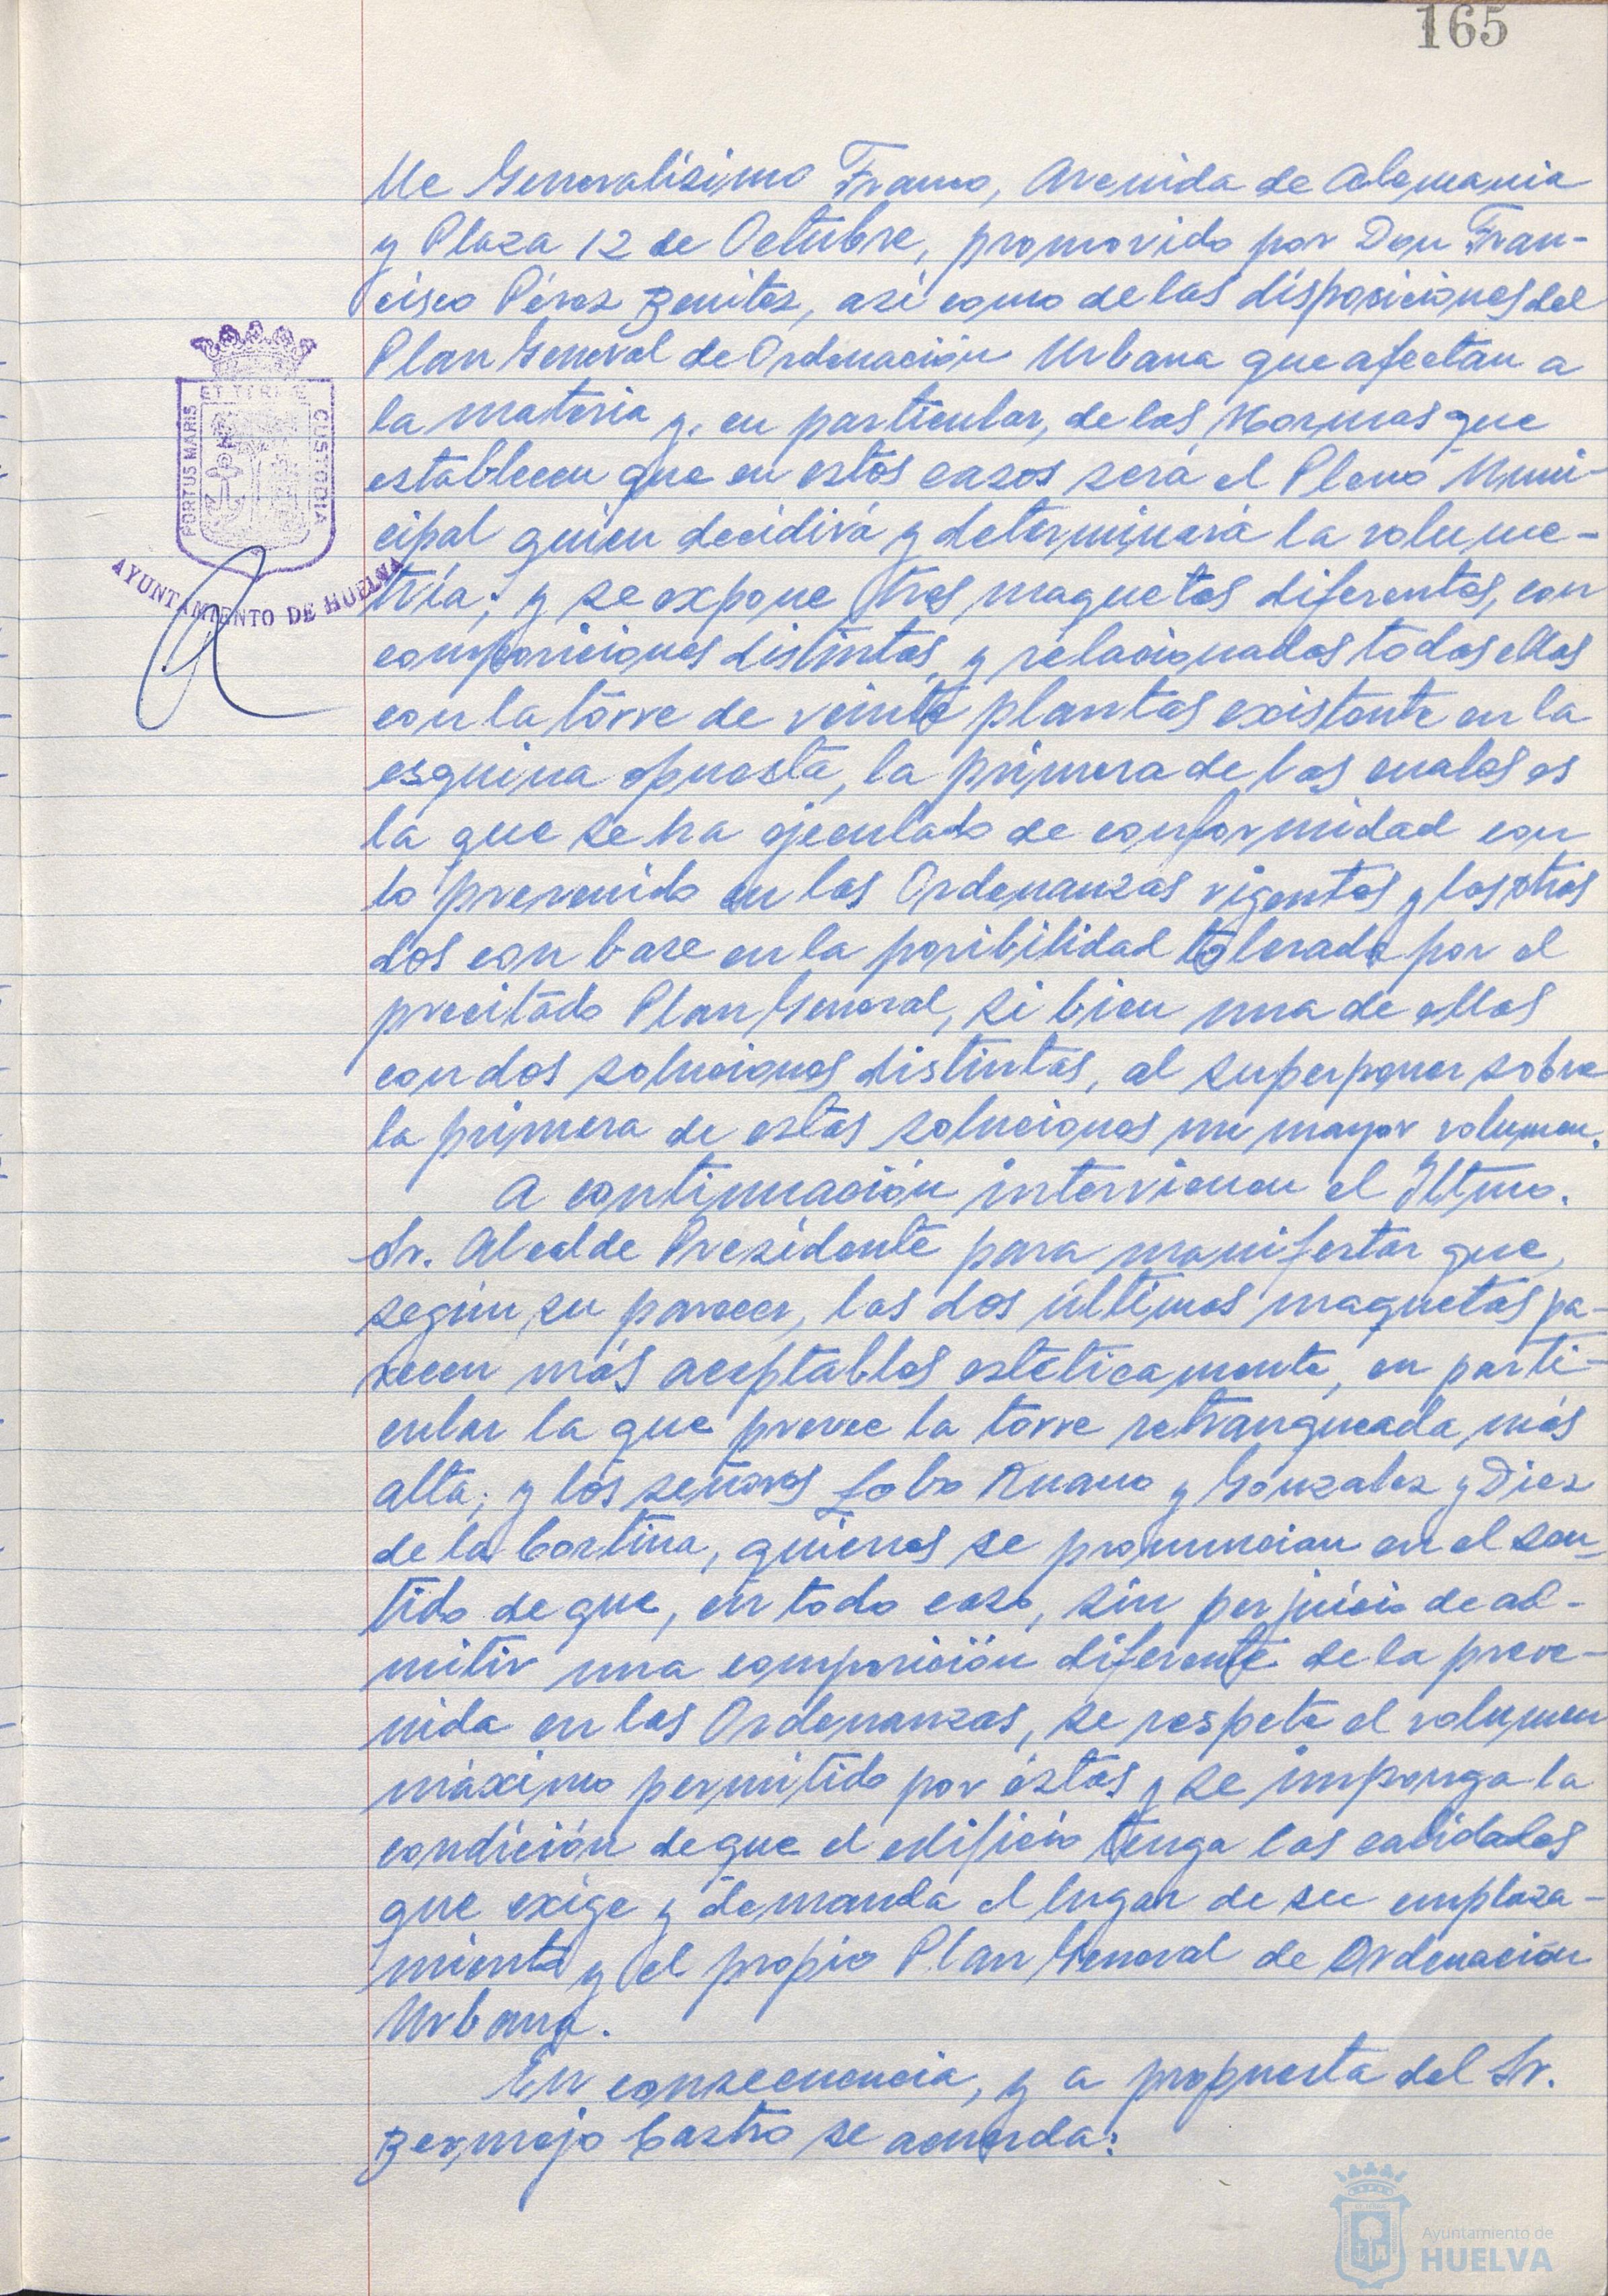 165
lle Generalísimo Franco, Avenida de Alemania
y Plaza 12 de Octubre, promovido por Don Fran-
cisco Pérez Benitez, así como de las disposiciones del
Plan General de Ordenación Urbana que afectan a
la materia y, en particular, de las Normas que
establecen que en estos casos será el Pleno Muni-
cipal quien decidirá y determinará la volume-
tría; y se expone tres maquetas diferentes, con
composiciones distintas, y relacionadas todas ellas
con la torre de veinte plantas existente en la
esquina opuesta, la primera de las cuales es
la que se ha ejecutado de conformidad con
lo prevenido en las Ordenanzas vigentes y las otras
dos con base en la posibilidad tolerada por el
precitado Plan General, si bien una de ellas
con dos soluciones distintas, al superponer sobre
la primera de estas soluciones un mayor volumen.
A continuación intervienen el Iltmo.
Sr. Alcalde Presidente para manifestar que,
según su parecer, las dos últimas maquetas pa-
recen más aceptables estéticamente, en parti-
cular la que prevee la torre retranqueada más
alta; y los señores Lobo Ruano y González y Diez
de la Cortina, quienes se pronuncian en el sen-
tido de que, en todo caso, sin perjuicio de ad-
mitir una composición diferente de la preve-
nida en las Ordenanzas, se respete el volumen
máximo permitido por éstas y se imponga la
condición de que el edificio tenga las calidades
que exige y demanda el lugar de su emplaza-
miento y el propio Plan General de Ordenación
Urbana.
En consecuencia, y a propuesta del Sr.
Bermejo Castro se acuerda:
PORTUS MARIS
ET TERRAE
CUSTODIA
AYUNTAMIENTO DE HUELVA
Ayuntamiento de
HUELVA